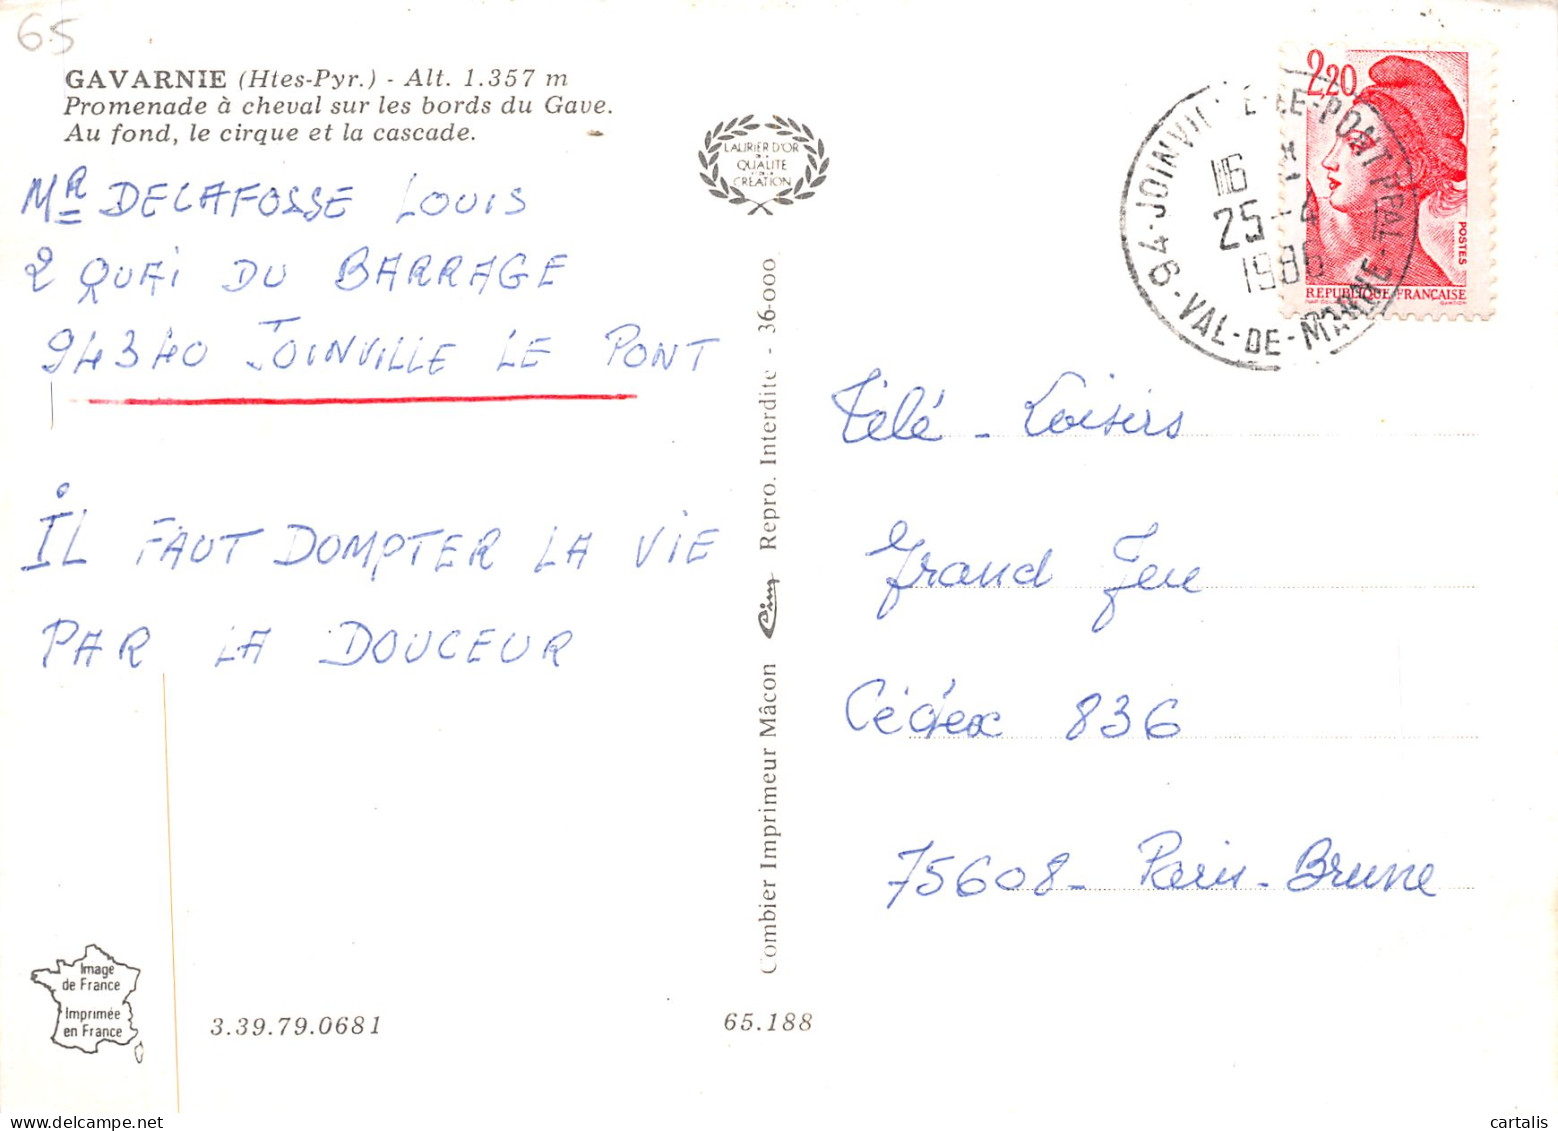 65
GAVARNIE (Htes-Pyr.) - Alt. 1.357 m
Promenade à cheval sur les bords du Gave.
Au fond, le cirque et la cascade.
MR DELAFOSSE LOUIS
2 QUAI DU BARRAGE
94340 JOINVILLE LE PONT
IL FAUT DOMPTER LA VIE
PAR LA DOUCEUR
Image
de France
Imprimée
en France
3.39.79.0681
65.188
LAURIER D'OR
DE LA
QUALITE
CREATION
Combier Imprimeur Mâcon Cim Repro. Interdite - 36-000
94-JOINVILLE-LE-PONT PPAL-
VAL-DE-MARNE
16 H
25-4
1986
2,20
POSTES
REPUBLIQUE FRANÇAISE
Télé-Loisirs
Grand Jeu
Cédex 836
75608-Paris-Brune
cartalis